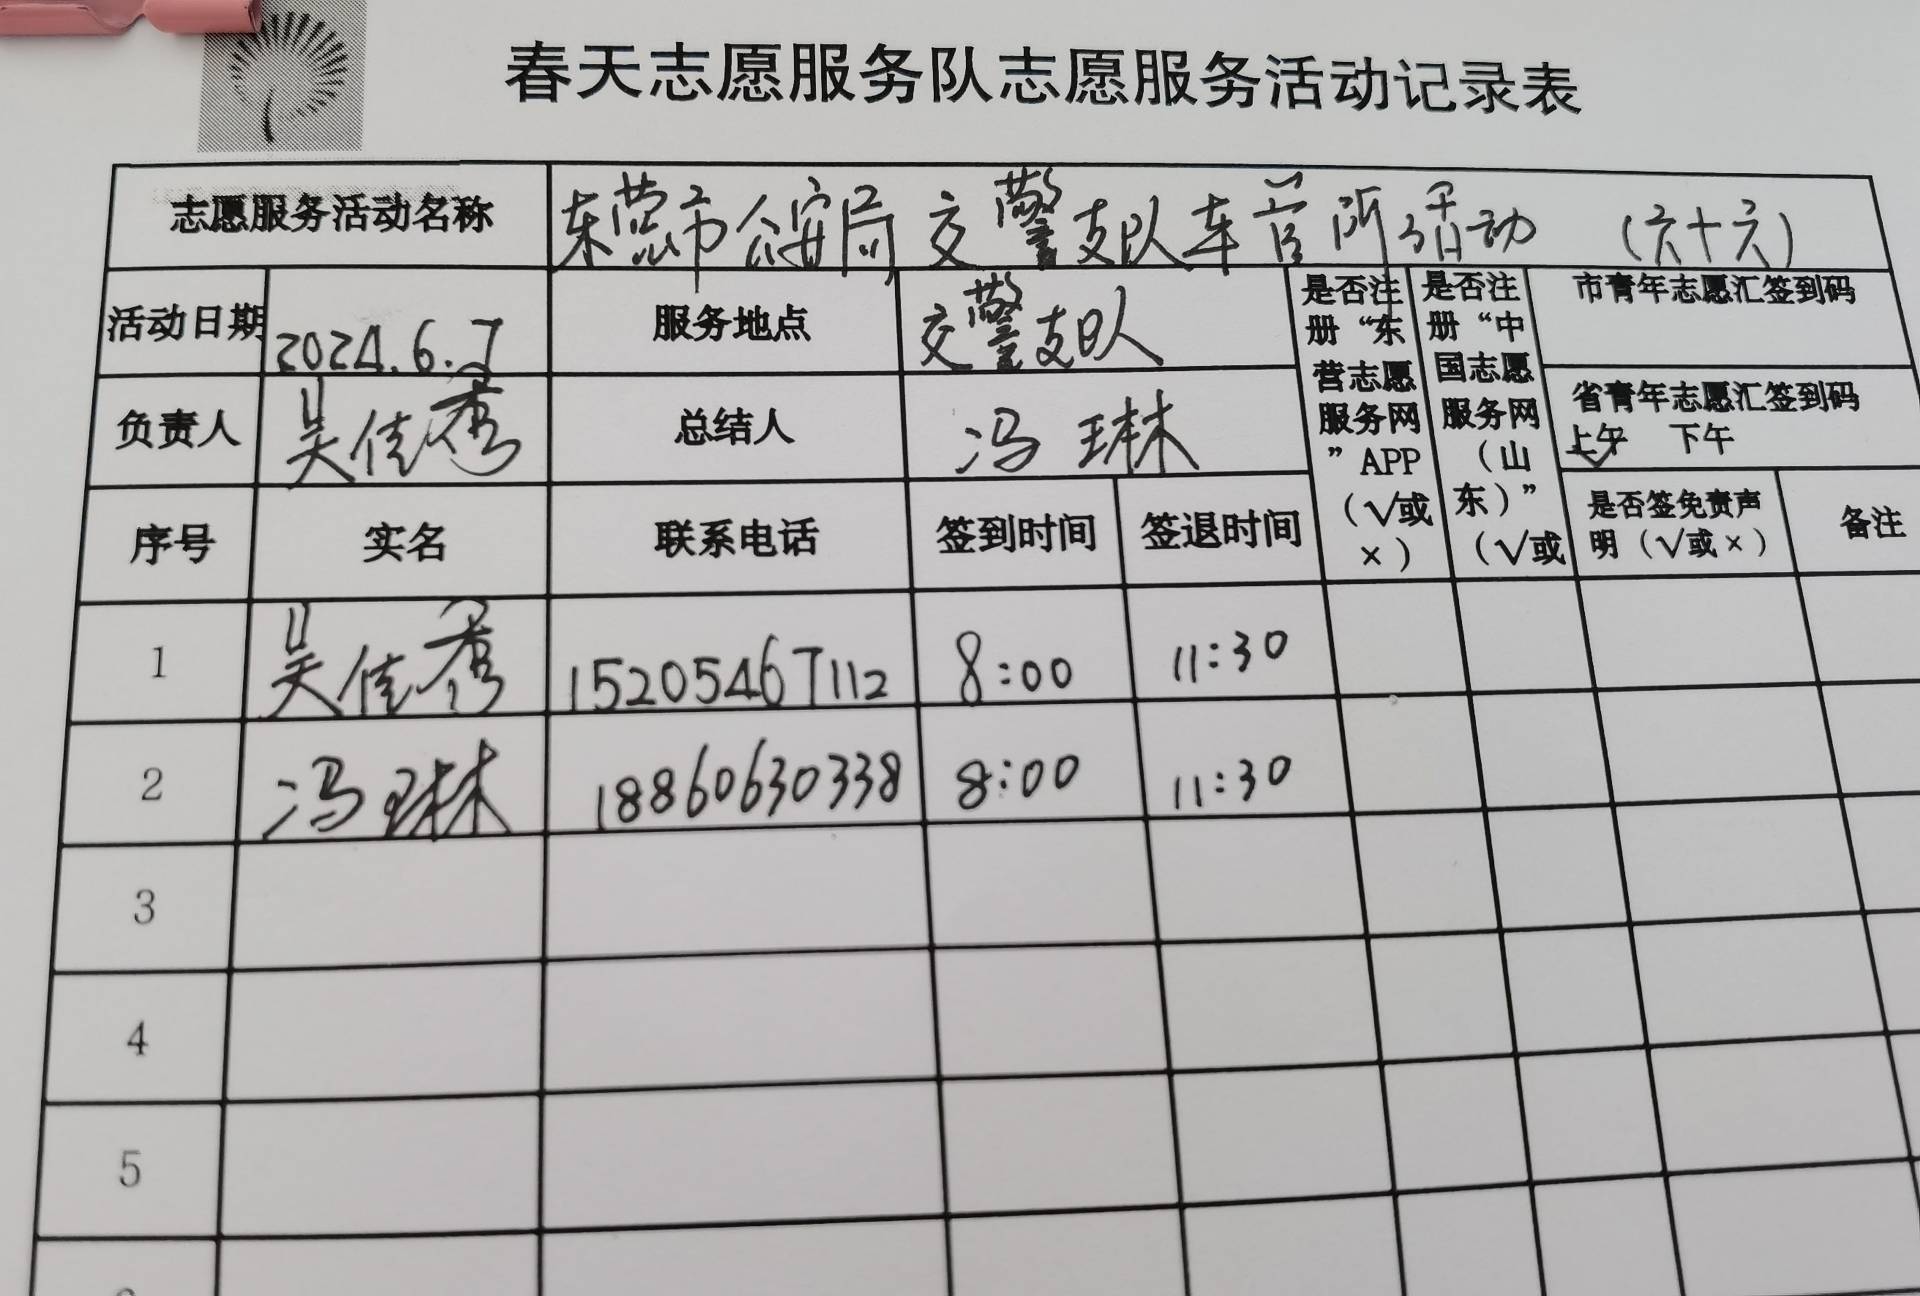 春天志愿服务队志愿服务活动记录表
志愿服务活动名称 东营市公安局交警支队车管所活动 (六十六)
活动日期 2024.6.7 服务地点 交警支队
负责人 吴佳秀 总结人 冯琳
是否注
册“东
营志愿
服务网
”APP
(√或
×)
是否注
册“中
国志愿
服务网
(山
东)”
(√或
市青年志愿汇签到码
省青年志愿汇签到码
上午 下午
序号 实名 联系电话 签到时间 签退时间
是否签免责声
明(√或×)
备注
1 吴佳秀 15205467112 8:00 11:30
2 冯琳 18860630338 8:00 11:30
3
4
5